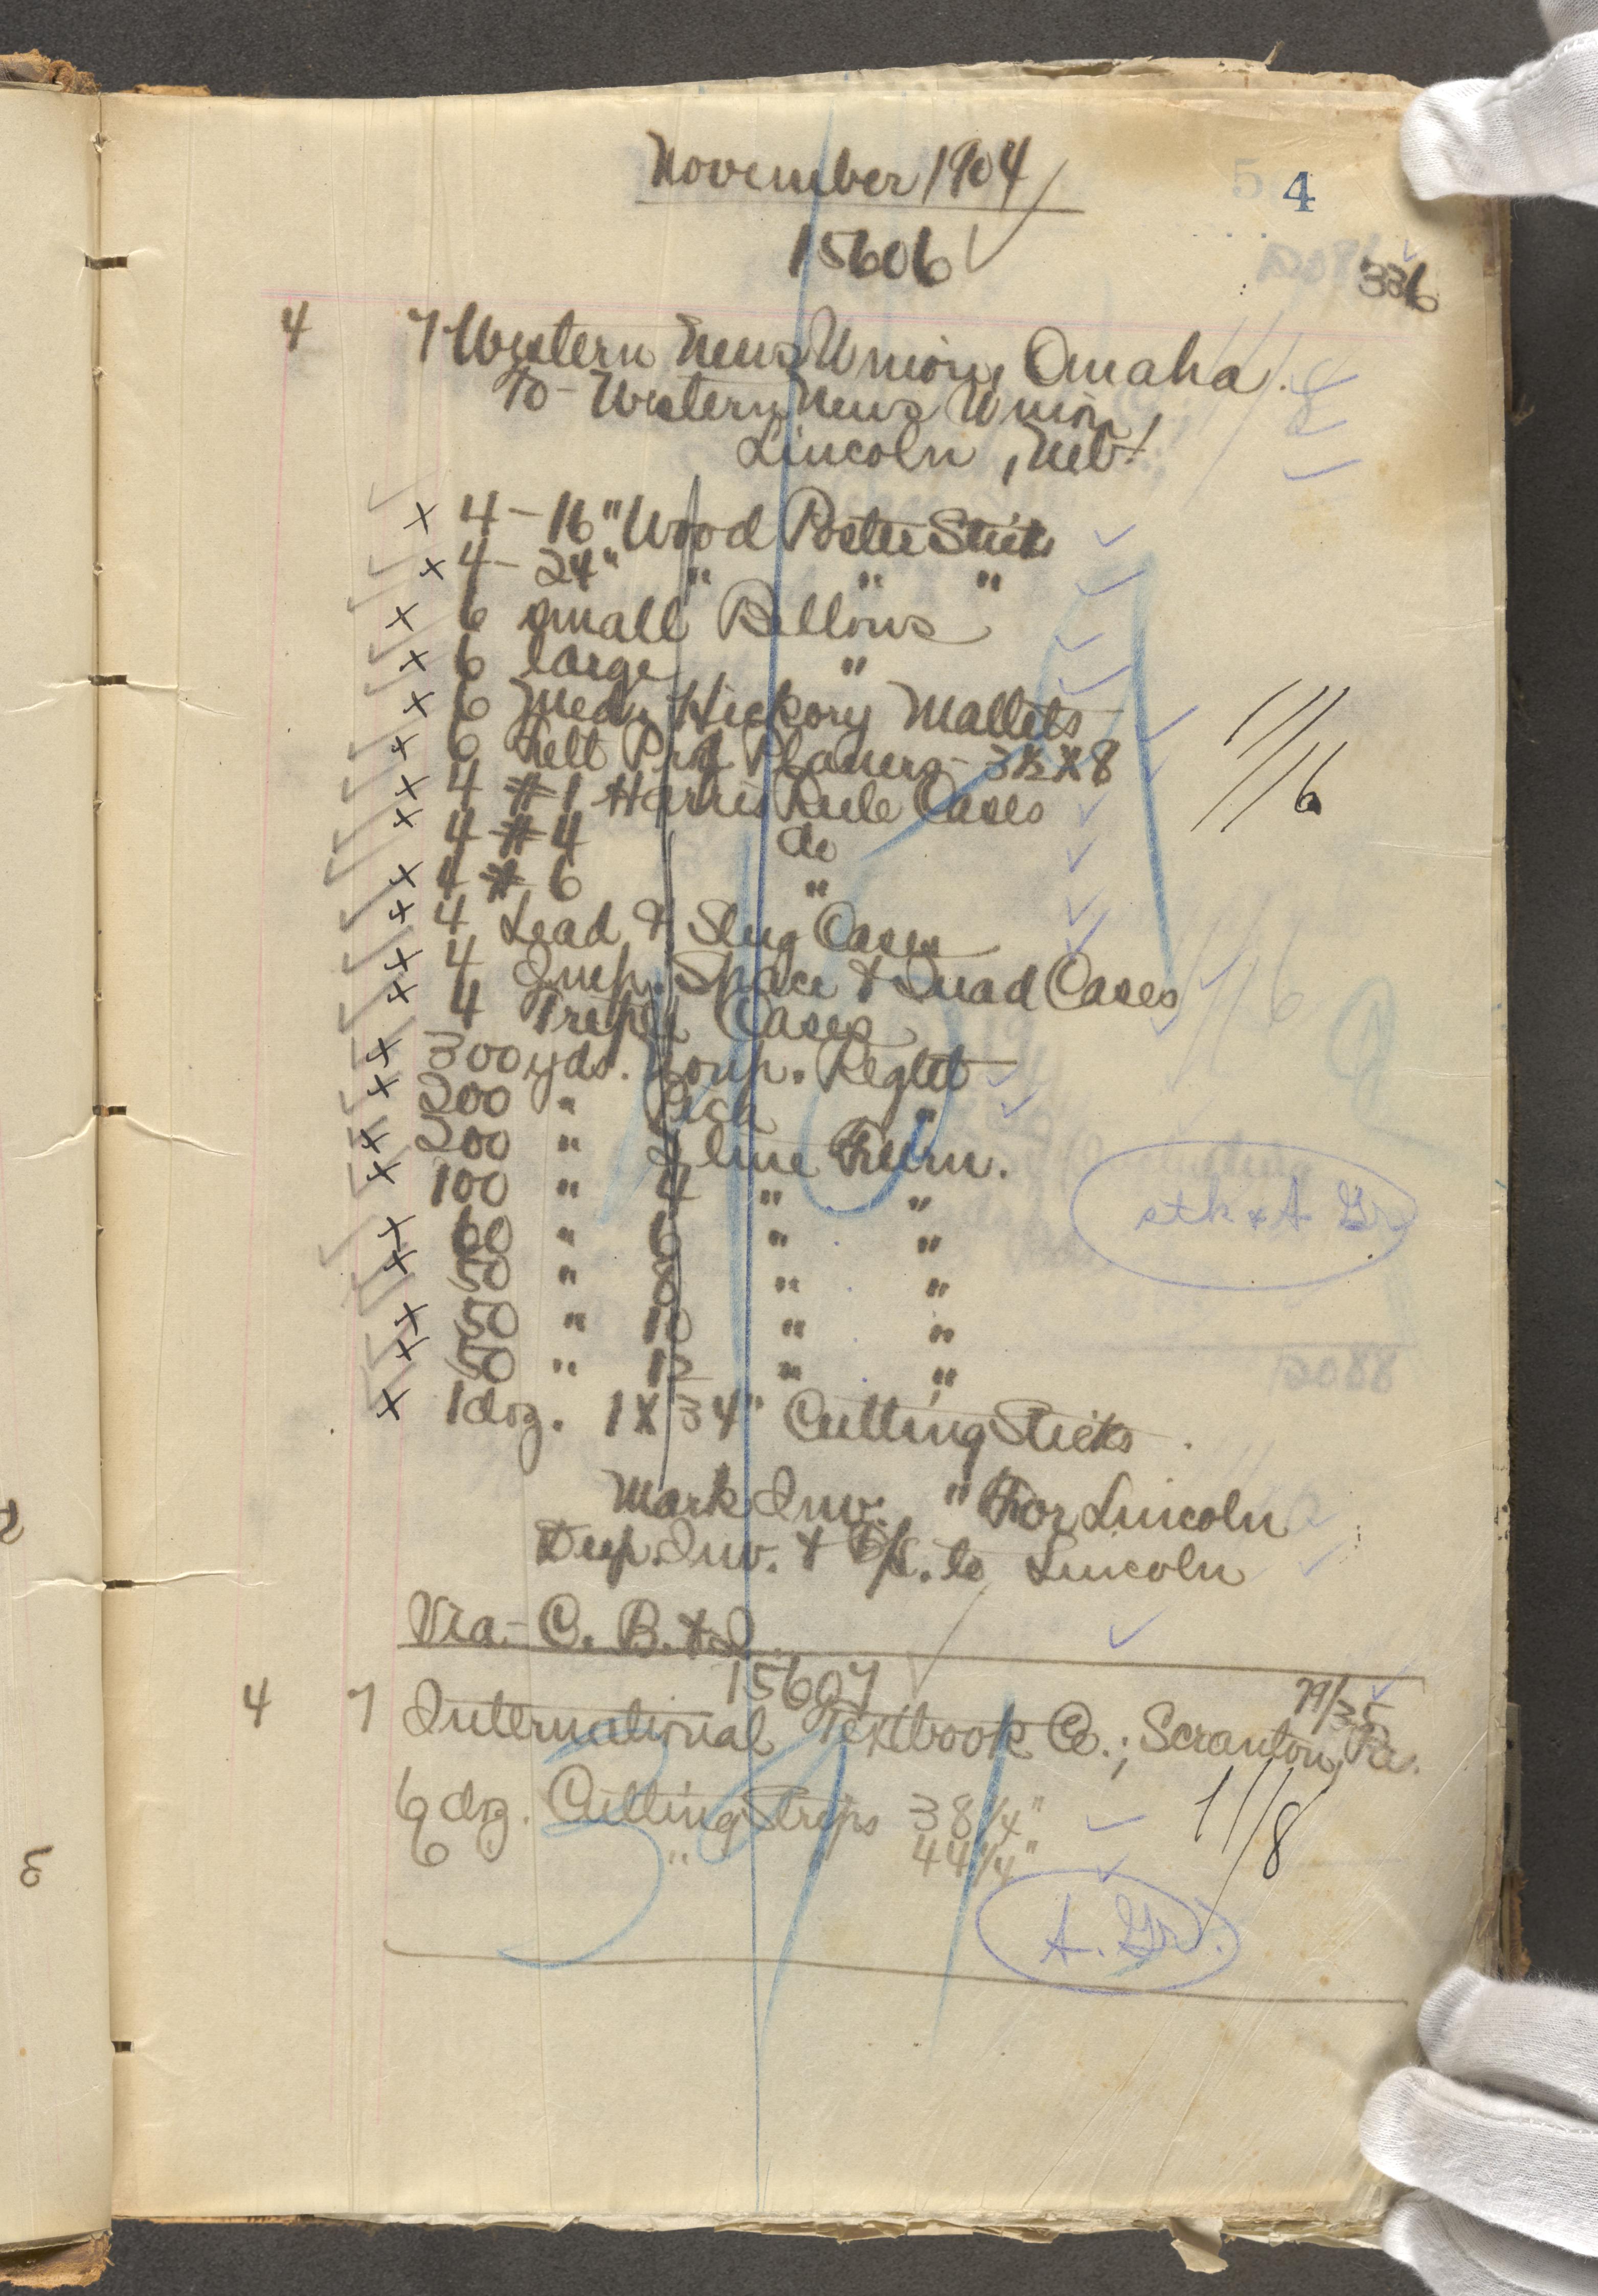 November 1904
4
15606
336
4 7 Western News Union, Omaha.
To - Western News Union
Lincoln, Neb.
x 4 - 16" Wood Poster Sticks
x 4 - 24" " " "
x 6 small Bellows
x 6 large "
x 6 Med. Hickory Mallets
x 6 Felt Prf Planers - 3½ X 8
x 4 #1 Harris Rule Cases
x 4 #4 do
x 4 #6 "
x 4 Lead & Slug Cases
x 4 Imp. Space & Quad Cases
x 4 Triple Cases
11/16
x 300 yds. Nonp. Reglet
x 200 " Pica "
x 200 " 2 line Furn.
x 100 " 4 " "
x 60 " 6 " "
x 50 " 8 " "
x 50 " 10 " "
x 50 " 12 " "
stk & A Gr
x 1 doz. 1 X 34" Cutting Sticks.
Mark Inv. "For Lincoln
Dup. Inv. & B/L. to Lincoln
Via - C. B. & Q.
15607
79/35
4 7 International Textbook Co.; Scranton, Pa.
6 doz. Cutting Strips 38¼"
6 " 44¼"
11/8
A. Gr.
341